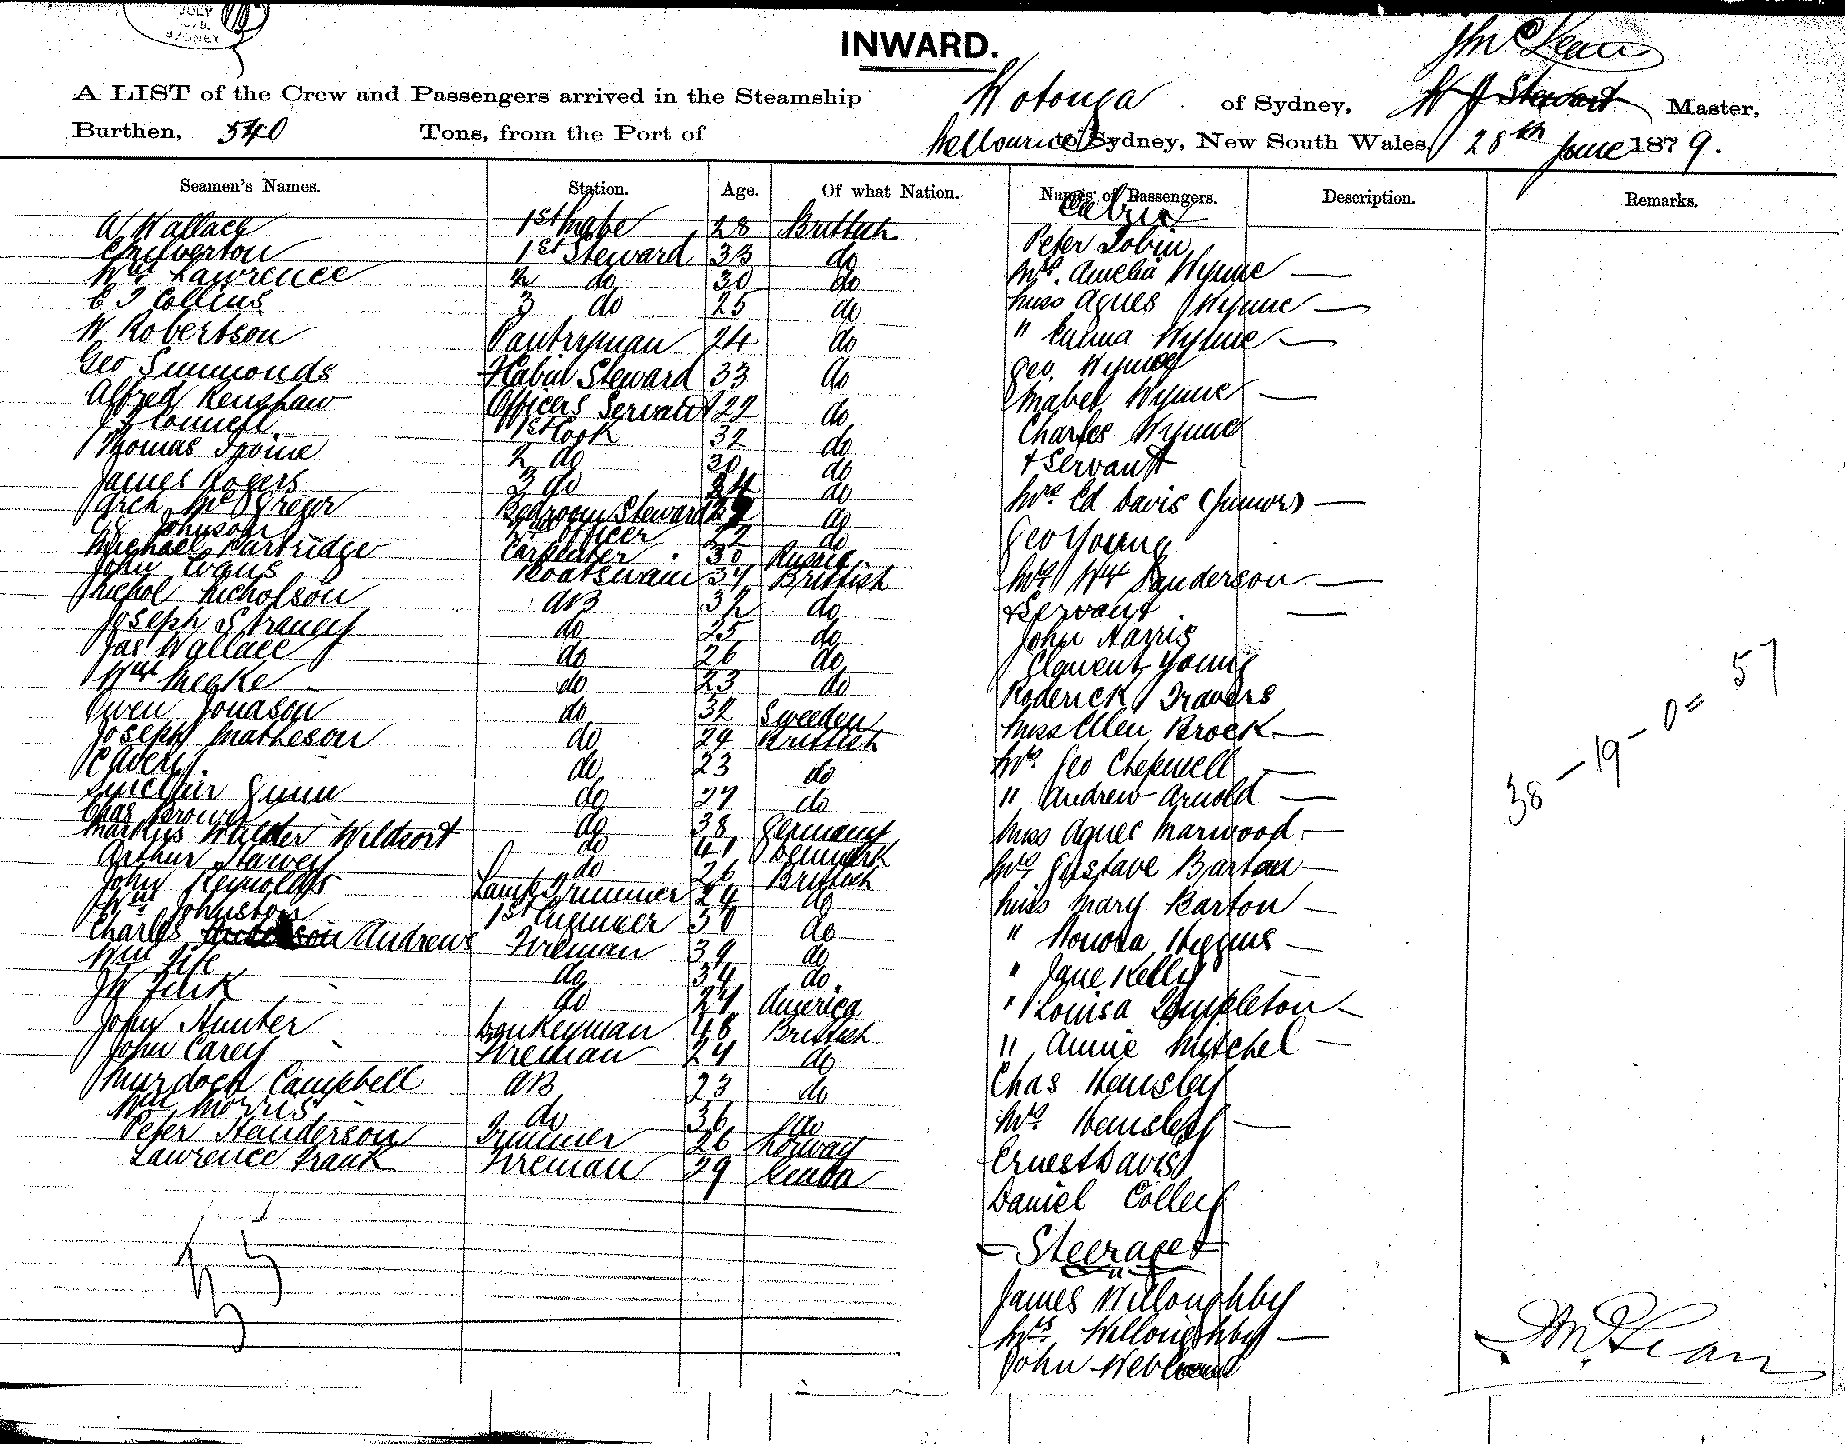 JULY
SYDNEY
INWARD.
J McLean
A LIST of the Crew and Passengers arrived in the Steamship Wotonga of Sydney, W J Stewart Master,
Burthen, 540 Tons, from the Port of Melbourne to Sydney, New South Wales, 28th June 1879.
Seamen's Names. Station. Age. Of what Nation. Names of Passengers. Description. Remarks.
A Wallace 1st Mate 28 Brittish
Chilverton 1st Steward 33 do
Wm Lawrence 2 do 30 do
C J Collins 3 do 25 do
W Robertson Pantryman 24 do
Geo Simmonds F Cabin Steward 33 do
Alfred Renshaw Officers Servant 22 do
J Connell 1st Cook 32 do
Thomas Irvine 2 do 30 do
James Rogers 3 do 34 do
Arch McGregor Bedroom Steward do
Johnson 2nd Officer 22 do
Michael Partridge Carpenter 30 Russia
John Evans Boatswain 34 Brittish
Michol Nicholson AB 32 do
Joseph Strangey do 25 do
Jas Wallace do 26 do
Wm Meake do 23 do
Owen Jonason do 32 Sweeden
Joseph Matheson do 29 Brittish
P Cavery do 23 do
Sinclair Gunn do 27 do
Chas Brown do 38 Germany
Markus Walder Weldzort do 41 Denmark
Arthur Harvey do 26 Brittish
John Reynolds Lamp Trimmer 24 do
Wm Johnston 1st Engineer 50 do
Charles Andrews Fireman 39 do
Wm Fife do 34 do
J W Fink do 27 America
John Hunter Donkeyman 48 Brittish
John Carey Fireman 24 do
Murdoch Campbell AB 23 do
Wm Morris do 36 do
Peter Handerson Trimmer 26 Norway
Lawrence Frank Fireman 29
Cabin
Peter Tobin
Mrs. Amelia Wynne —
Miss Agnes Wynne —
" Emma Wynne —
Geo. Wynne
Mabel Wynne —
Charles Wynne
+ Servant
Mrs Ed Davis (Junior) —
Geo Young
Mrs W H Sanderson —
+ Servant —
John Harris
Clement Young
Roderick Travers
Miss Ellen Brock —
Mrs. Geo Chepmell —
" Andrew Arnold —
Miss Agnes Marwood —
Mrs Gustave Barton —
Miss Mary Barton —
" Honora Higgins —
" Jane Kelly —
" Louisa Templeton —
" Annie Mitchel —
Chas Hemsley
Mrs. Hemsley —
Ernest Davis
Daniel Colley
— Steerage
James Willoughby
Mrs. Willoughby —
John
38 – 19 – 0 = 57
J McLean